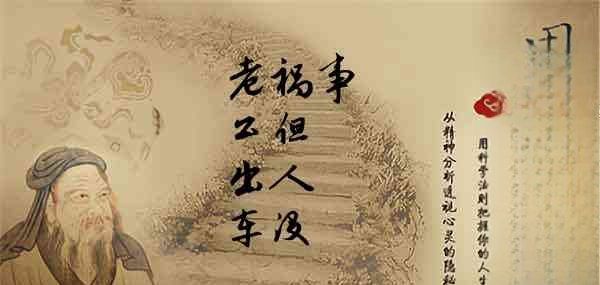 老公出车
祸但人没
事
用科学法则把握你的人生
从精神分析透视心灵的隐秘